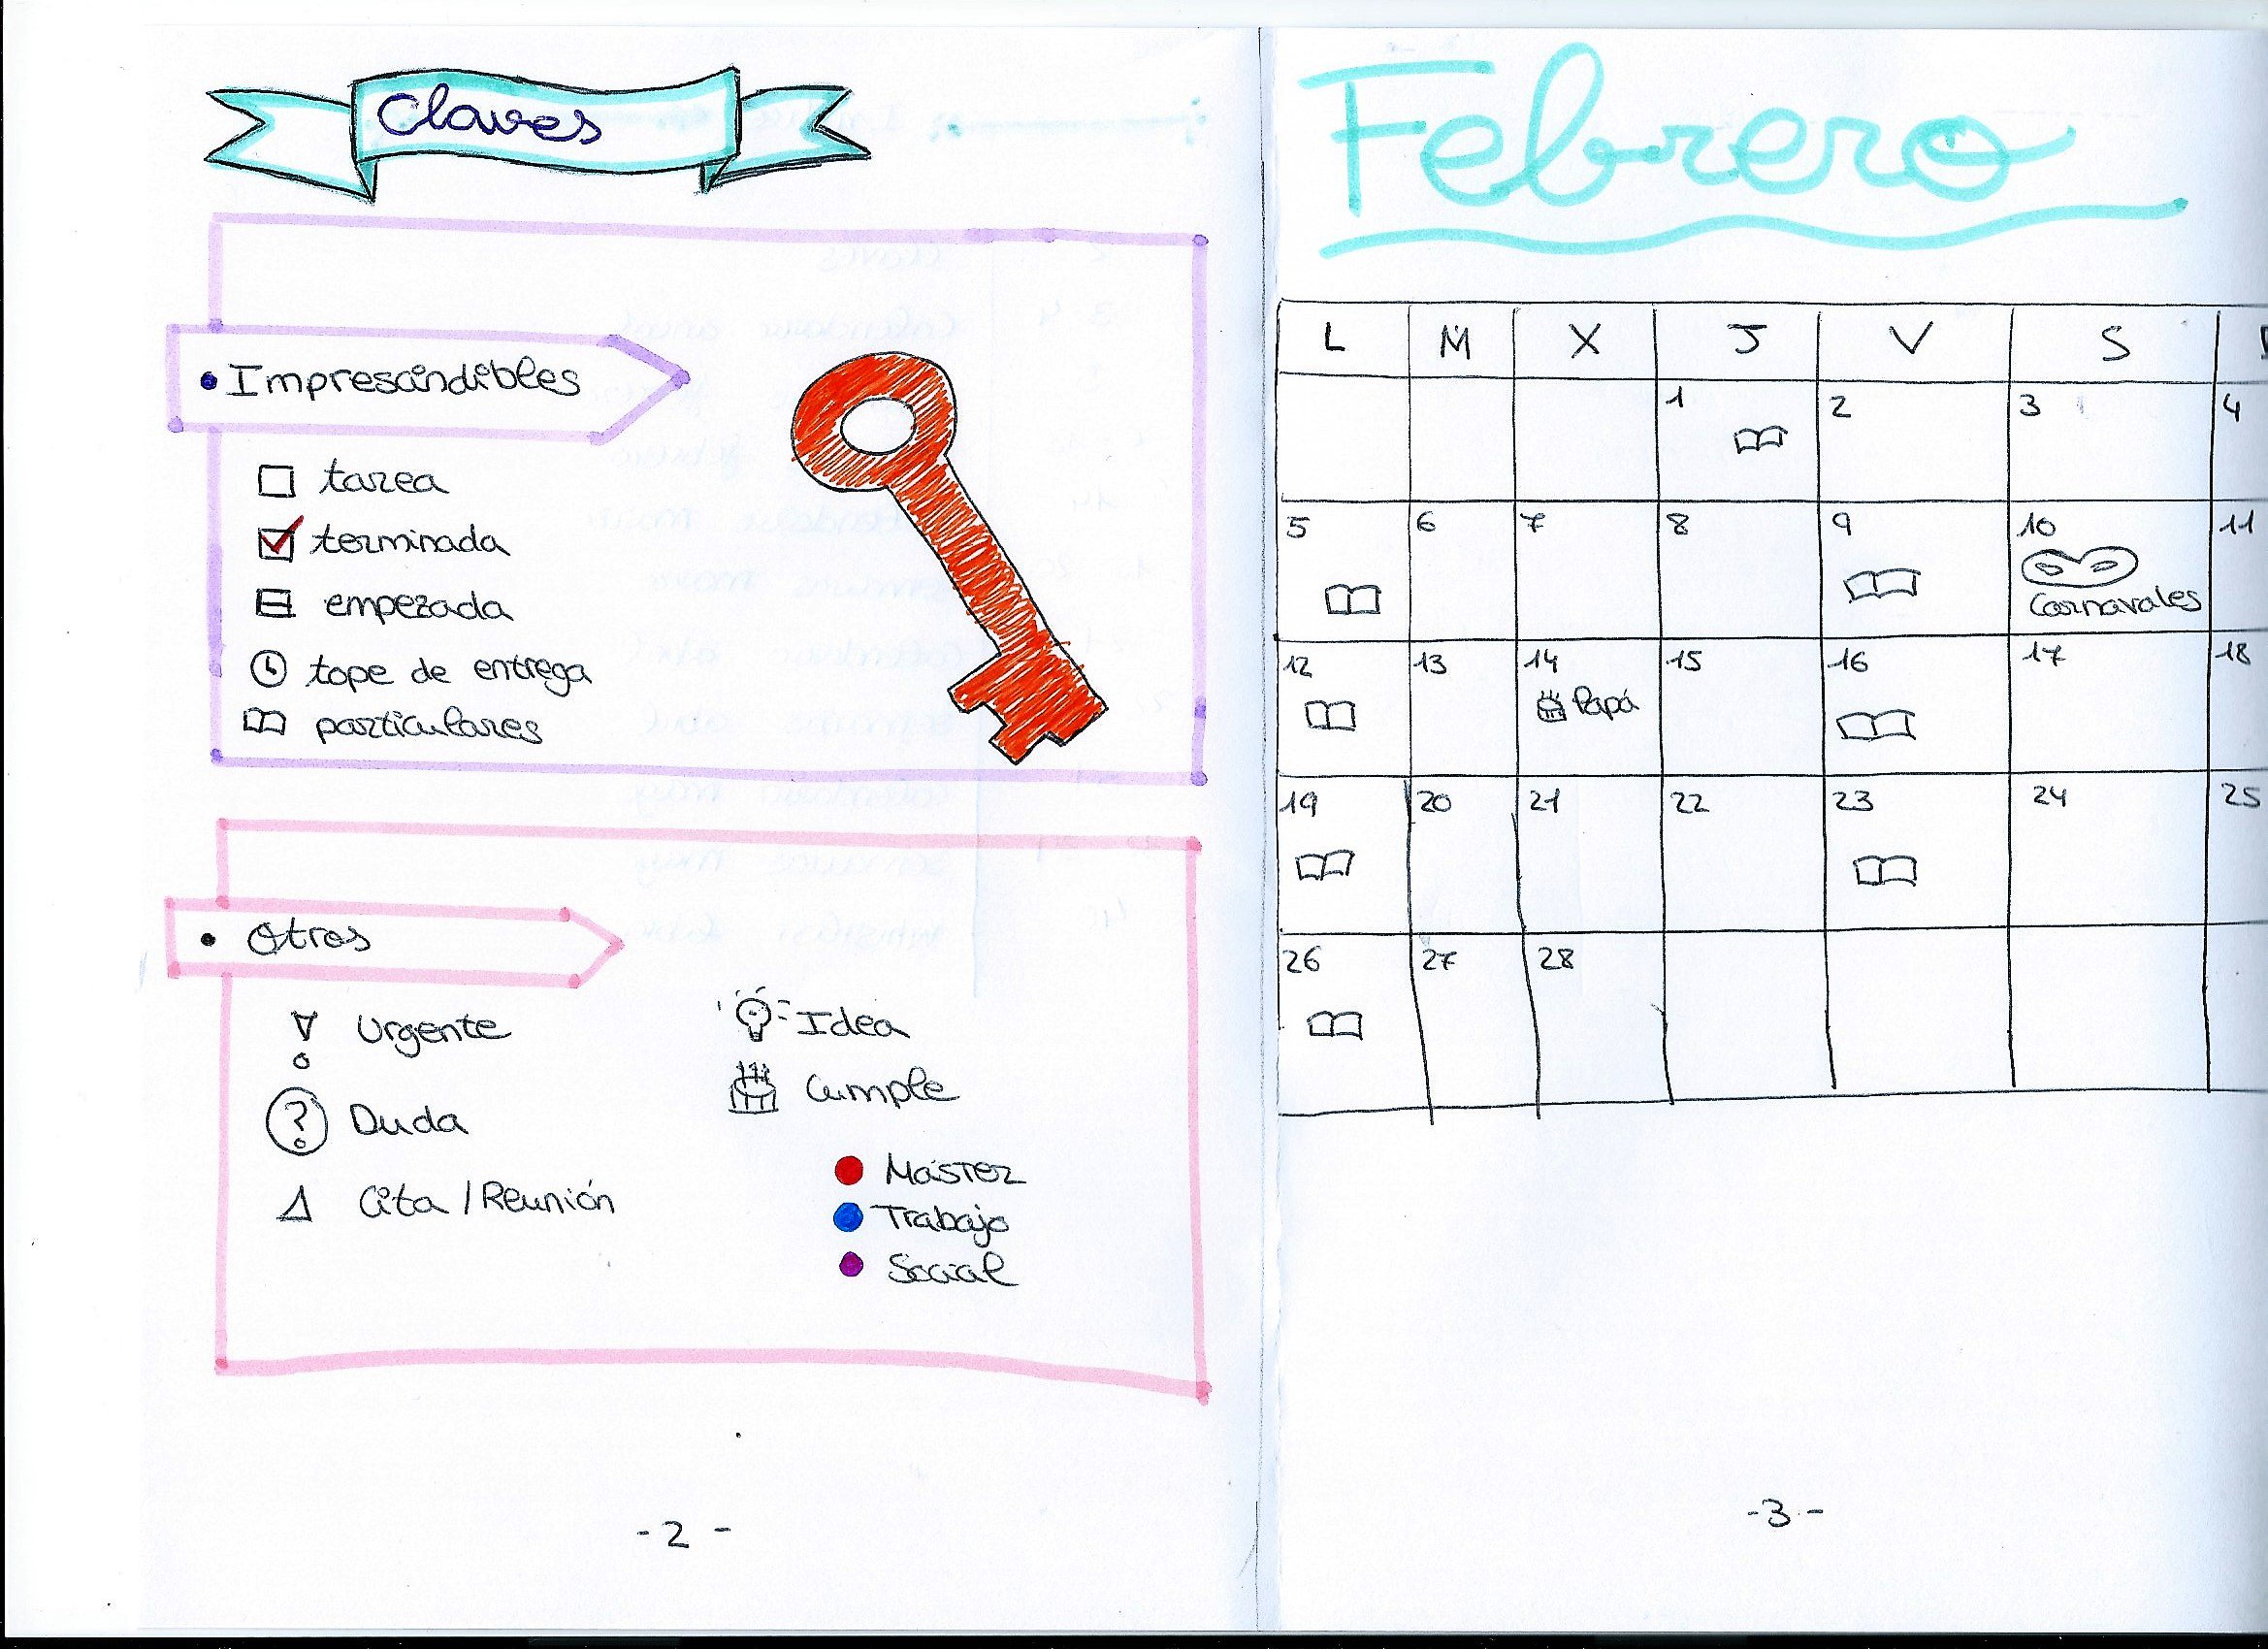 Claves
• Imprescindibles
tarea
terminada
empezada
tope de entrega
particulares
• Otros
Urgente
Duda
Cita / Reunión
Idea
Cumple
Máster
Trabajo
Social
- 2 -
Febrero
L M X J V S
1 2 3 4
5 6 7 8 9 10 11
Carnavales
12 13 14 15 16 17 18
Papá
19 20 21 22 23 24 25
26 27 28
-3-